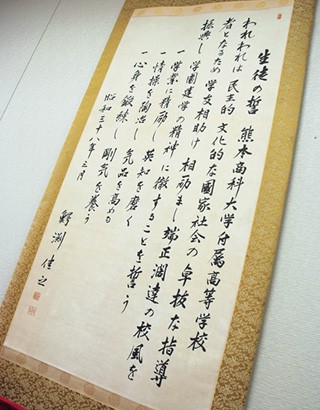 生徒の誓 熊本商科大学付属高等学校
われわれは民主的文化的な國家社会の卓抜な指導
者となるため 学友相助け 相励まし 端正濶達の校風を
振興し 学園建学の精神に徹することを誓う
一 学業に精励し 英知を磨く
一 情操を陶冶し 気品を高める
一 心身を鍛練し 剛気を養う
昭和三十八年三月
鰐渕健之